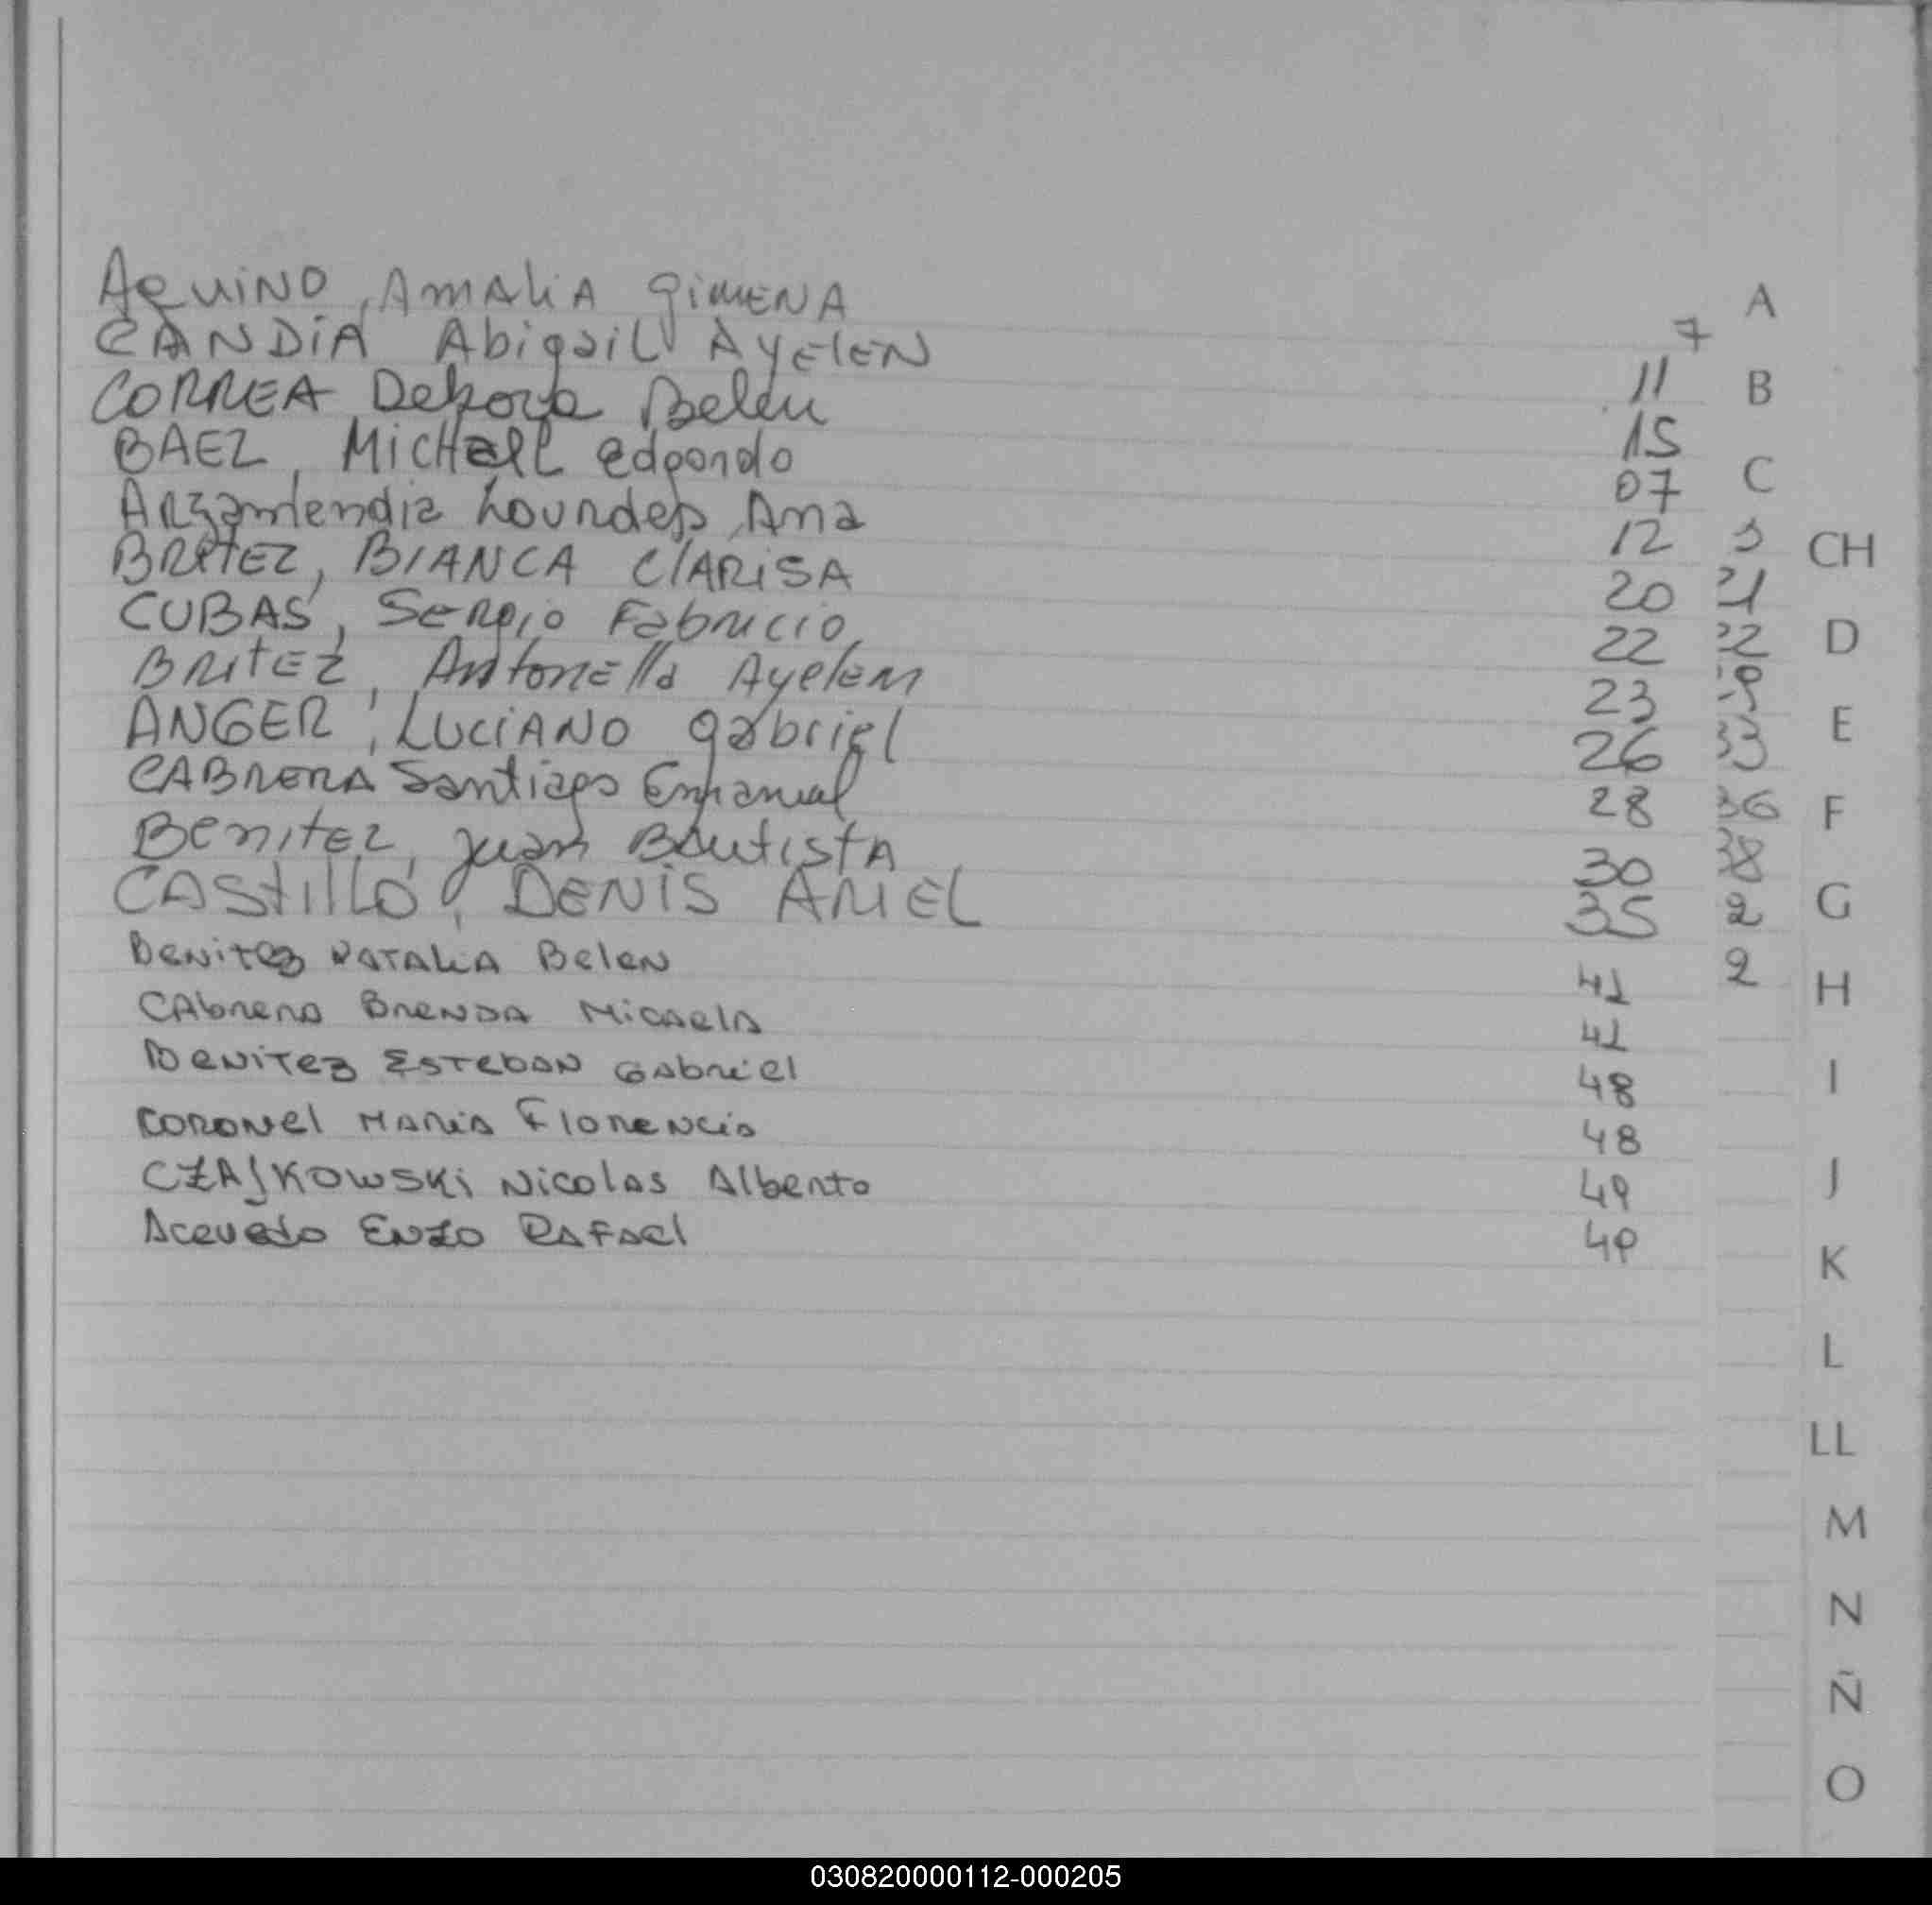 AQUINO, AMALIA GIMENA 7
CANDIA Abigail AYELEN 11
CORREA Debora Belen 15
BAEZ, MICHAEL Edgardo 07
Arzamendia Lourdes Ana 12
BRITEZ, BIANCA CLARISA 20
CUBAS, Sergio Fabricio 22
BRITEZ, Antonella Ayelem 23
ANGER, LUCIANO gabriel 26
CABRERA Santiago Emanuel 28
Benitez, Juan BAutistA 30
CASTILLO, DENIS ARIEL 35
Benitez NATALIA Belen 41
CAbrera BRENDA MicAelA 41
Benitez ESTEBAN GAbriel 48
CORONel MARIA Florencia 48
CZAJKOWSKI Nicolas Alberto 49
Acevedo ENZO RAFAel 49
A
B
C
CH
D
E
F
G
H
I
J
K
L
LL
M
N
Ñ
O
030820000112-000205